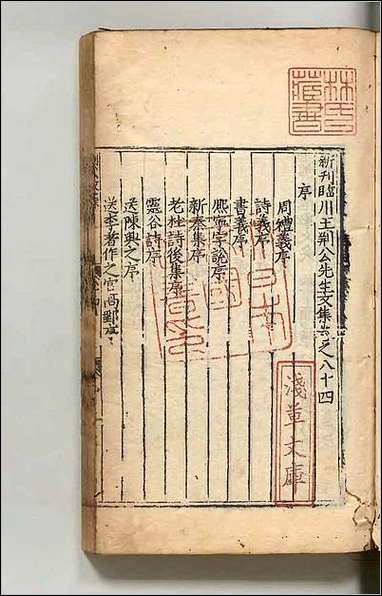 新刊臨川王荆公先生文集卷之八十四
序
周禮義序
詩義序
書義序
熙寧字説序
新秦集序
老杜詩後集序
靈谷詩序
送陳興之序
送李著作之官高郵序
林氏藏書
日本
淺草文庫